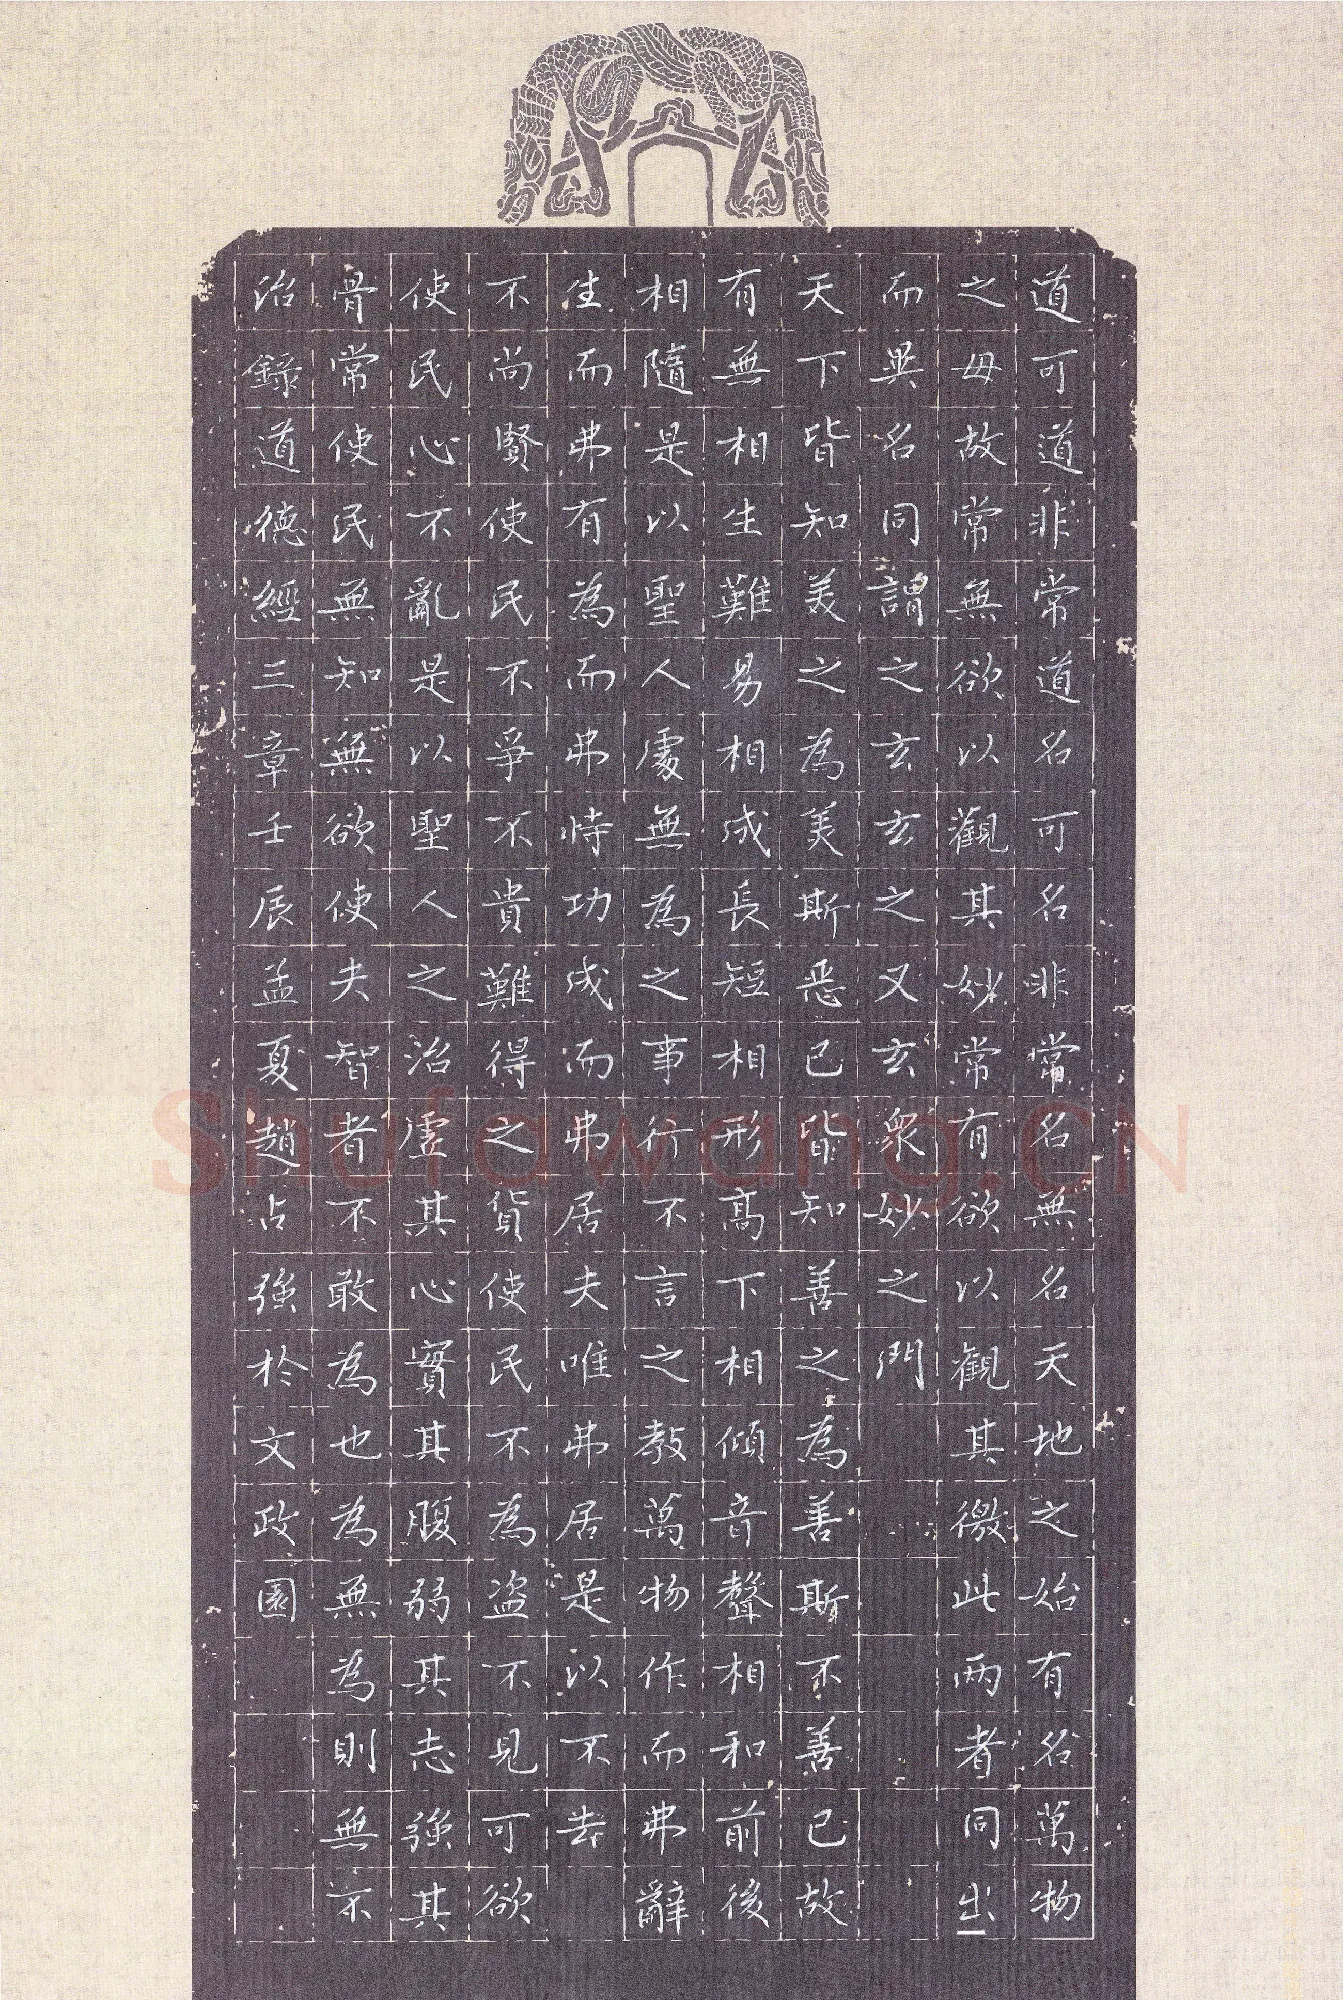 道可道非常道名可名非常名無名天地之始有名萬物
之母故常無欲以觀其妙常有欲以觀其徼此兩者同出
而異名同謂之玄玄之又玄衆妙之門
天下皆知美之為美斯惡已皆知善之為善斯不善已故
有無相生難易相成長短相形高下相傾音聲相和前後
相隨是以聖人處無為之事行不言之教萬物作而弗辭
生而弗有為而弗恃功成而弗居夫唯弗居是以不去
不尚賢使民不爭不貴難得之貨使民不為盗不見可欲
使民心不亂是以聖人之治虛其心實其腹弱其志強其
骨常使民無知無欲使夫智者不敢為也為無為則無不
治錄道德經三章壬辰孟夏趙占強於文政園
Shufawang.CN